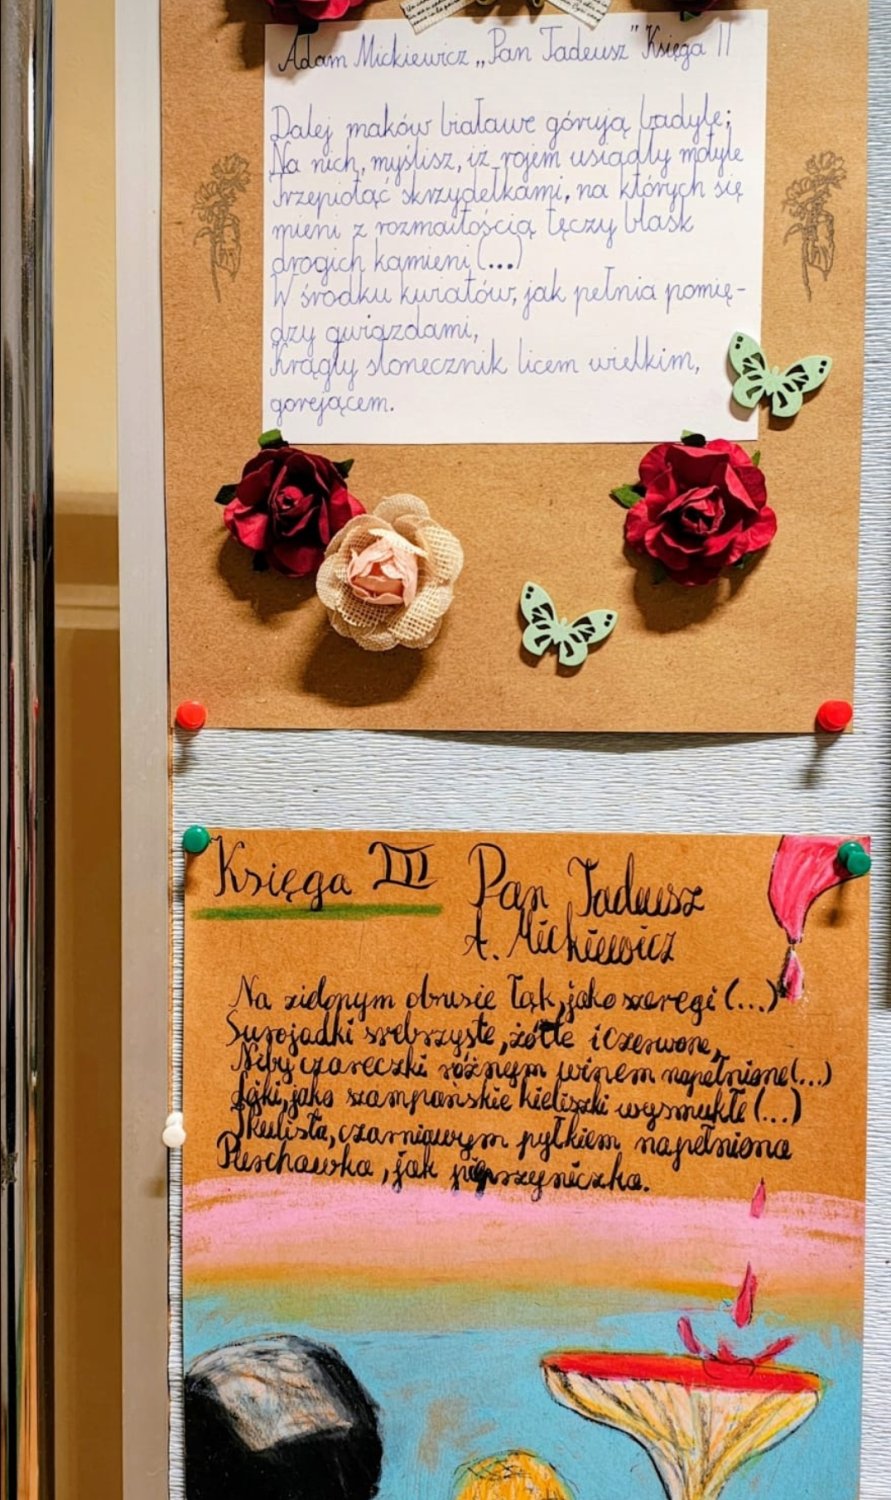 Adam Mickiewicz „Pan Tadeusz” Księga II
Dalej maków białawe górują badyle;
Na nich, myślisz, iż rojem usiadły motyle
Trzepiotąc skrzydełkami, na których się
mieni z rozmaitością tęczy blask
drogich kamieni (...)
W środku kwiatów, jak pełnia pomię-
dzy gwiazdami,
Krągły słonecznik licem wielkim,
gorejącem.
Księga III Pan Tadeusz
A. Mickiewicz
Na zielonym obrusie łąk, jako szeregi (...)
Surojadki srebrzyste, żółte i czerwone,
Niby czareczki różnym winem napełnione (...)
Lejki, jako szampańskie kieliszki wysmukłe (...)
I kulista, czarniawym pyłkiem napełniona
Purchawka, jak pieprzyniczka.